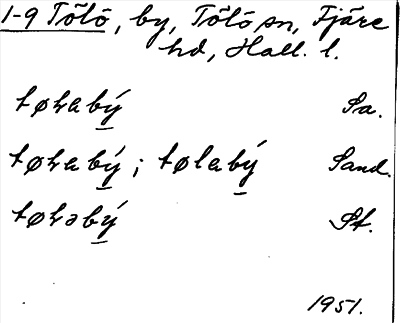 1-9 Tölö, by, Tölö sn, Fjäre
hd, Hall. l.
tøƚabý Sa.
tøƚabý; tølabý Sand.
tøƚəbý St.
1951.